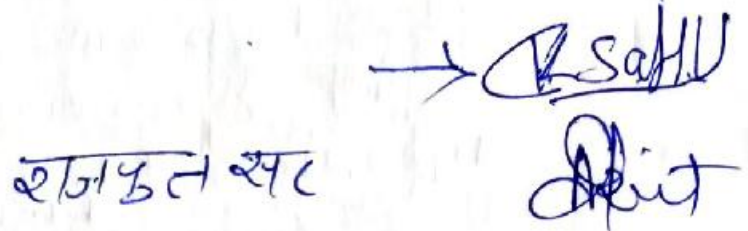 → R Sahu
राजपुत सर
Ankit